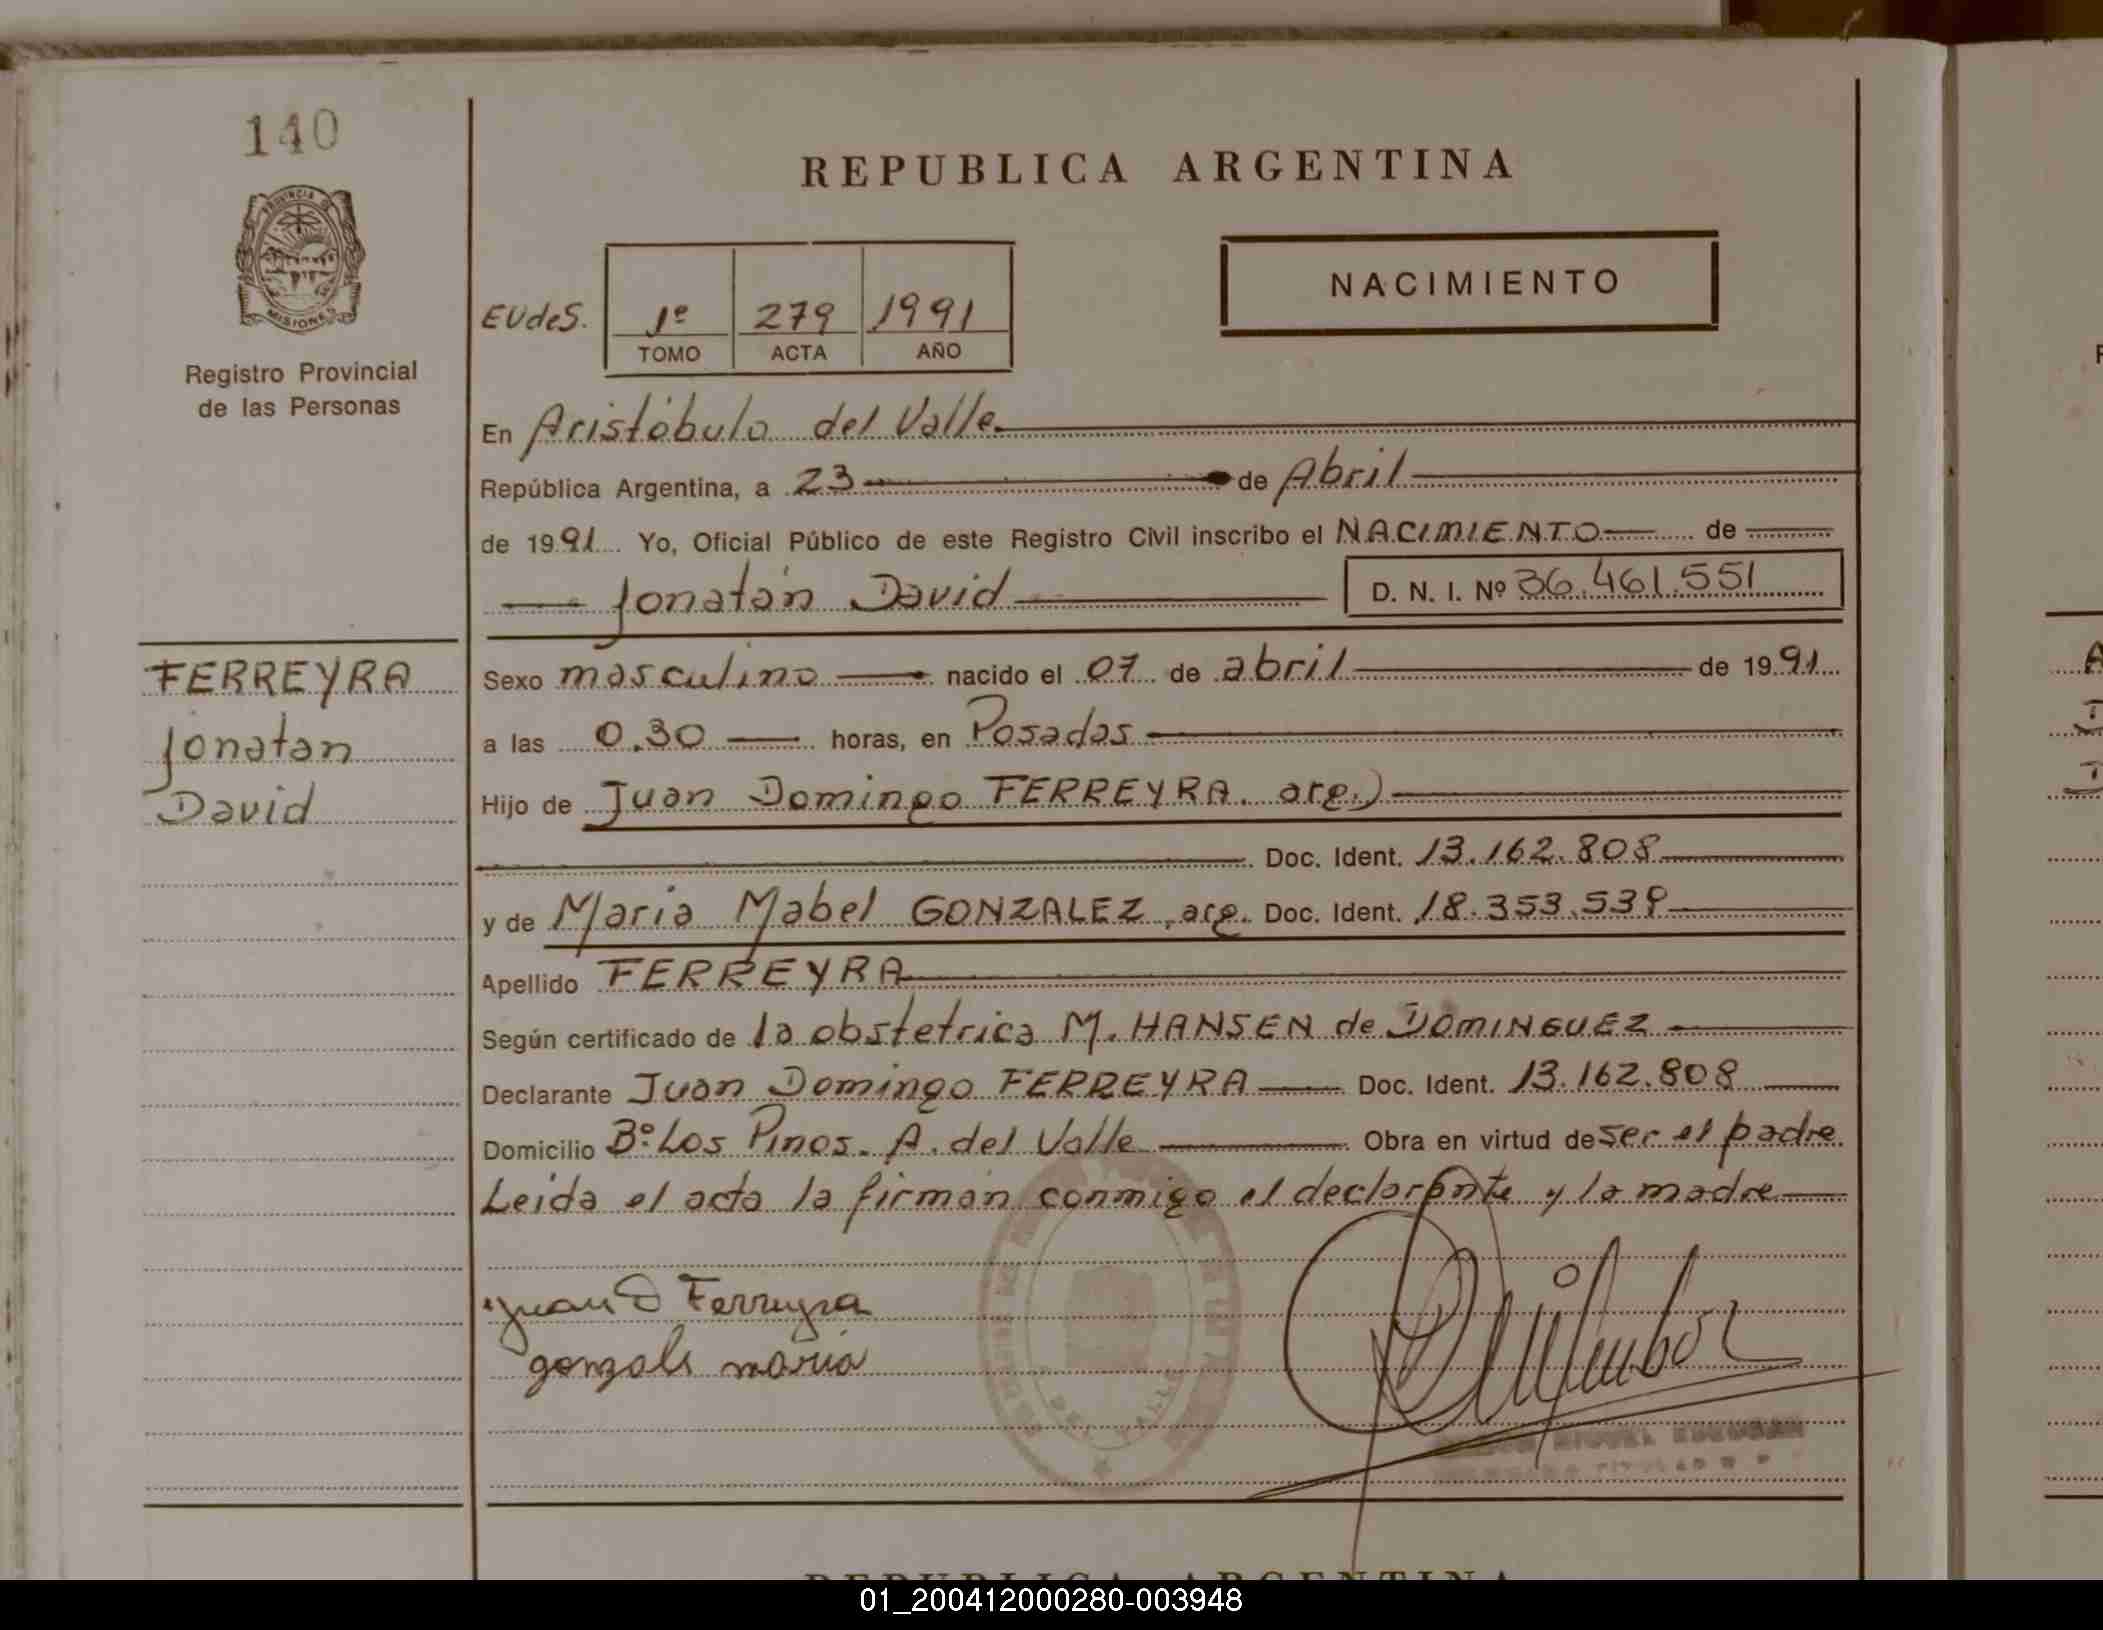 140
REPUBLICA ARGENTINA
PROVINCIA DE
MISIONES
Registro Provincial
de las Personas
NACIMIENTO
EUdeS. 1º 279 1991
TOMO ACTA AÑO
En Aristóbulo del Valle.
República Argentina, a 23 de Abril
de 1991 Yo, Oficial Público de este Registro Civil inscribo el NACIMIENTO de
Jonatán David D. N. I. Nº 36.461.551
FERREYRA
Jonatan
David
Sexo masculino nacido el 07 de abril de 1991
a las 0.30 horas, en Posadas
Hijo de Juan Domingo FERREYRA. arg.)
Doc. Ident. 13.162.808
y de Maria Mabel GONZALEZ, arg. Doc. Ident. 18.353.539
Apellido FERREYRA
Según certificado de la obstetrica M. HANSEN de DOMINGUEZ
Declarante Juan Domingo FERREYRA Doc. Ident. 13.162.808
Domicilio Bº Los Pinos. A. del Valle Obra en virtud de ser el padre
Leida el acta la firman conmigo el declarante y la madre
Juan D Ferreyra
gonzale maria
DEL VALLE
REPUBLICA ARGENTINA
01_200412000280-003948